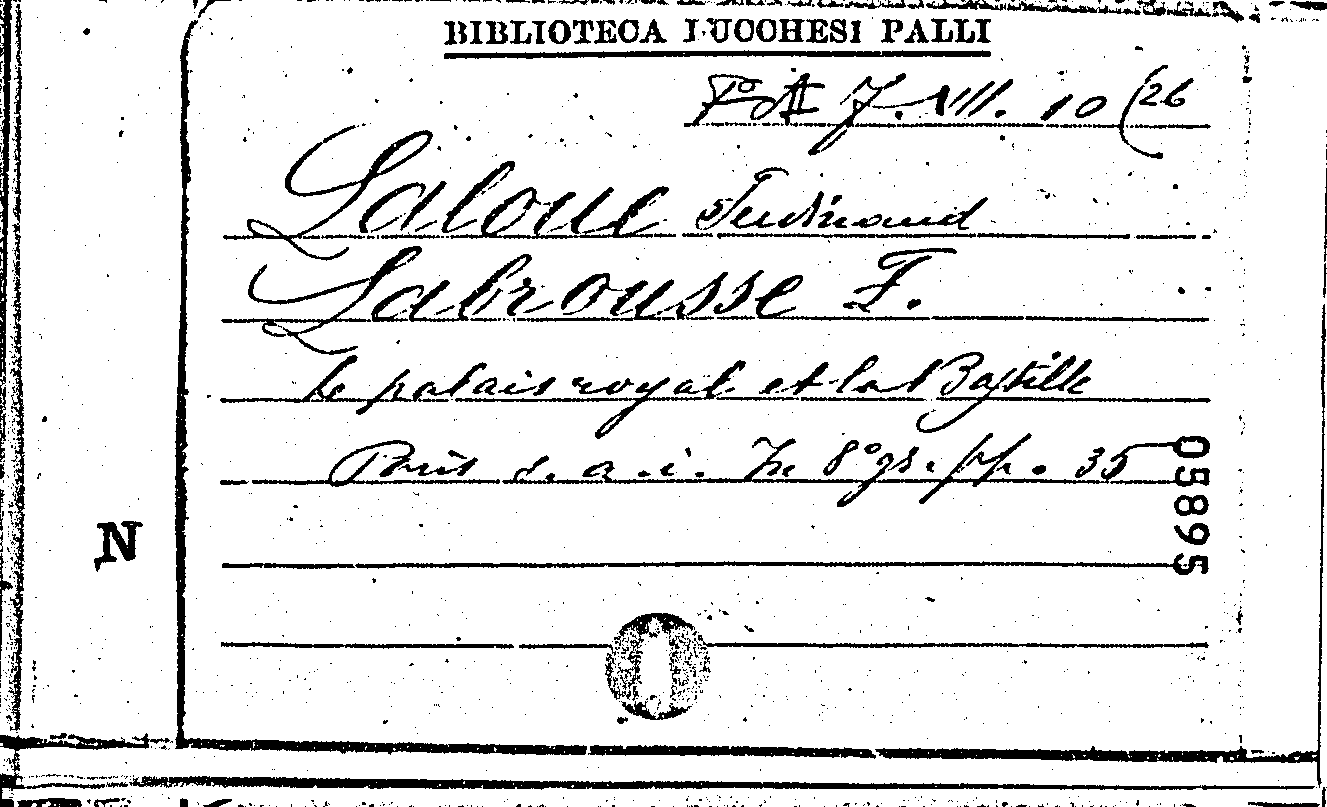 BIBLIOTECA LUCCHESI PALLI
7. VIII. 10 (26
Laloue Ferdinand
Labrousse F.
Le palais royal et la Bastille
Paris s. a. i. In 8° gr. pp. 35
05895
N